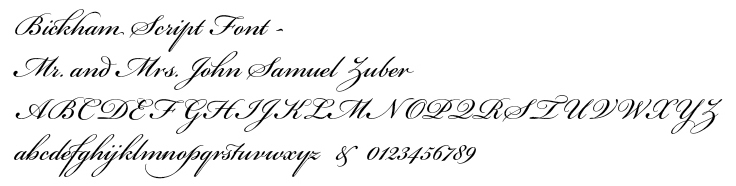 Bickham Script Font -
Mr. and Mrs. John Samuel Zuber
ABCDEFGHIJKLMNOPQRSTUVWXYZ
abcdefghijklmnopqrstuvwxyz & 0123456789